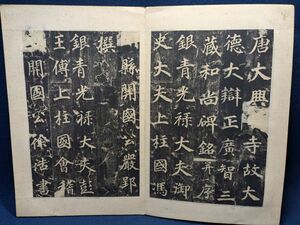 唐大興 寺故大
德大辯正廣智三
藏和尚碑銘并序
銀青光祿大夫御
史大夫上柱國馮
縣開國公嚴郢
撰
銀青光祿大夫彭
王傅上柱國會稽
開國公徐浩書